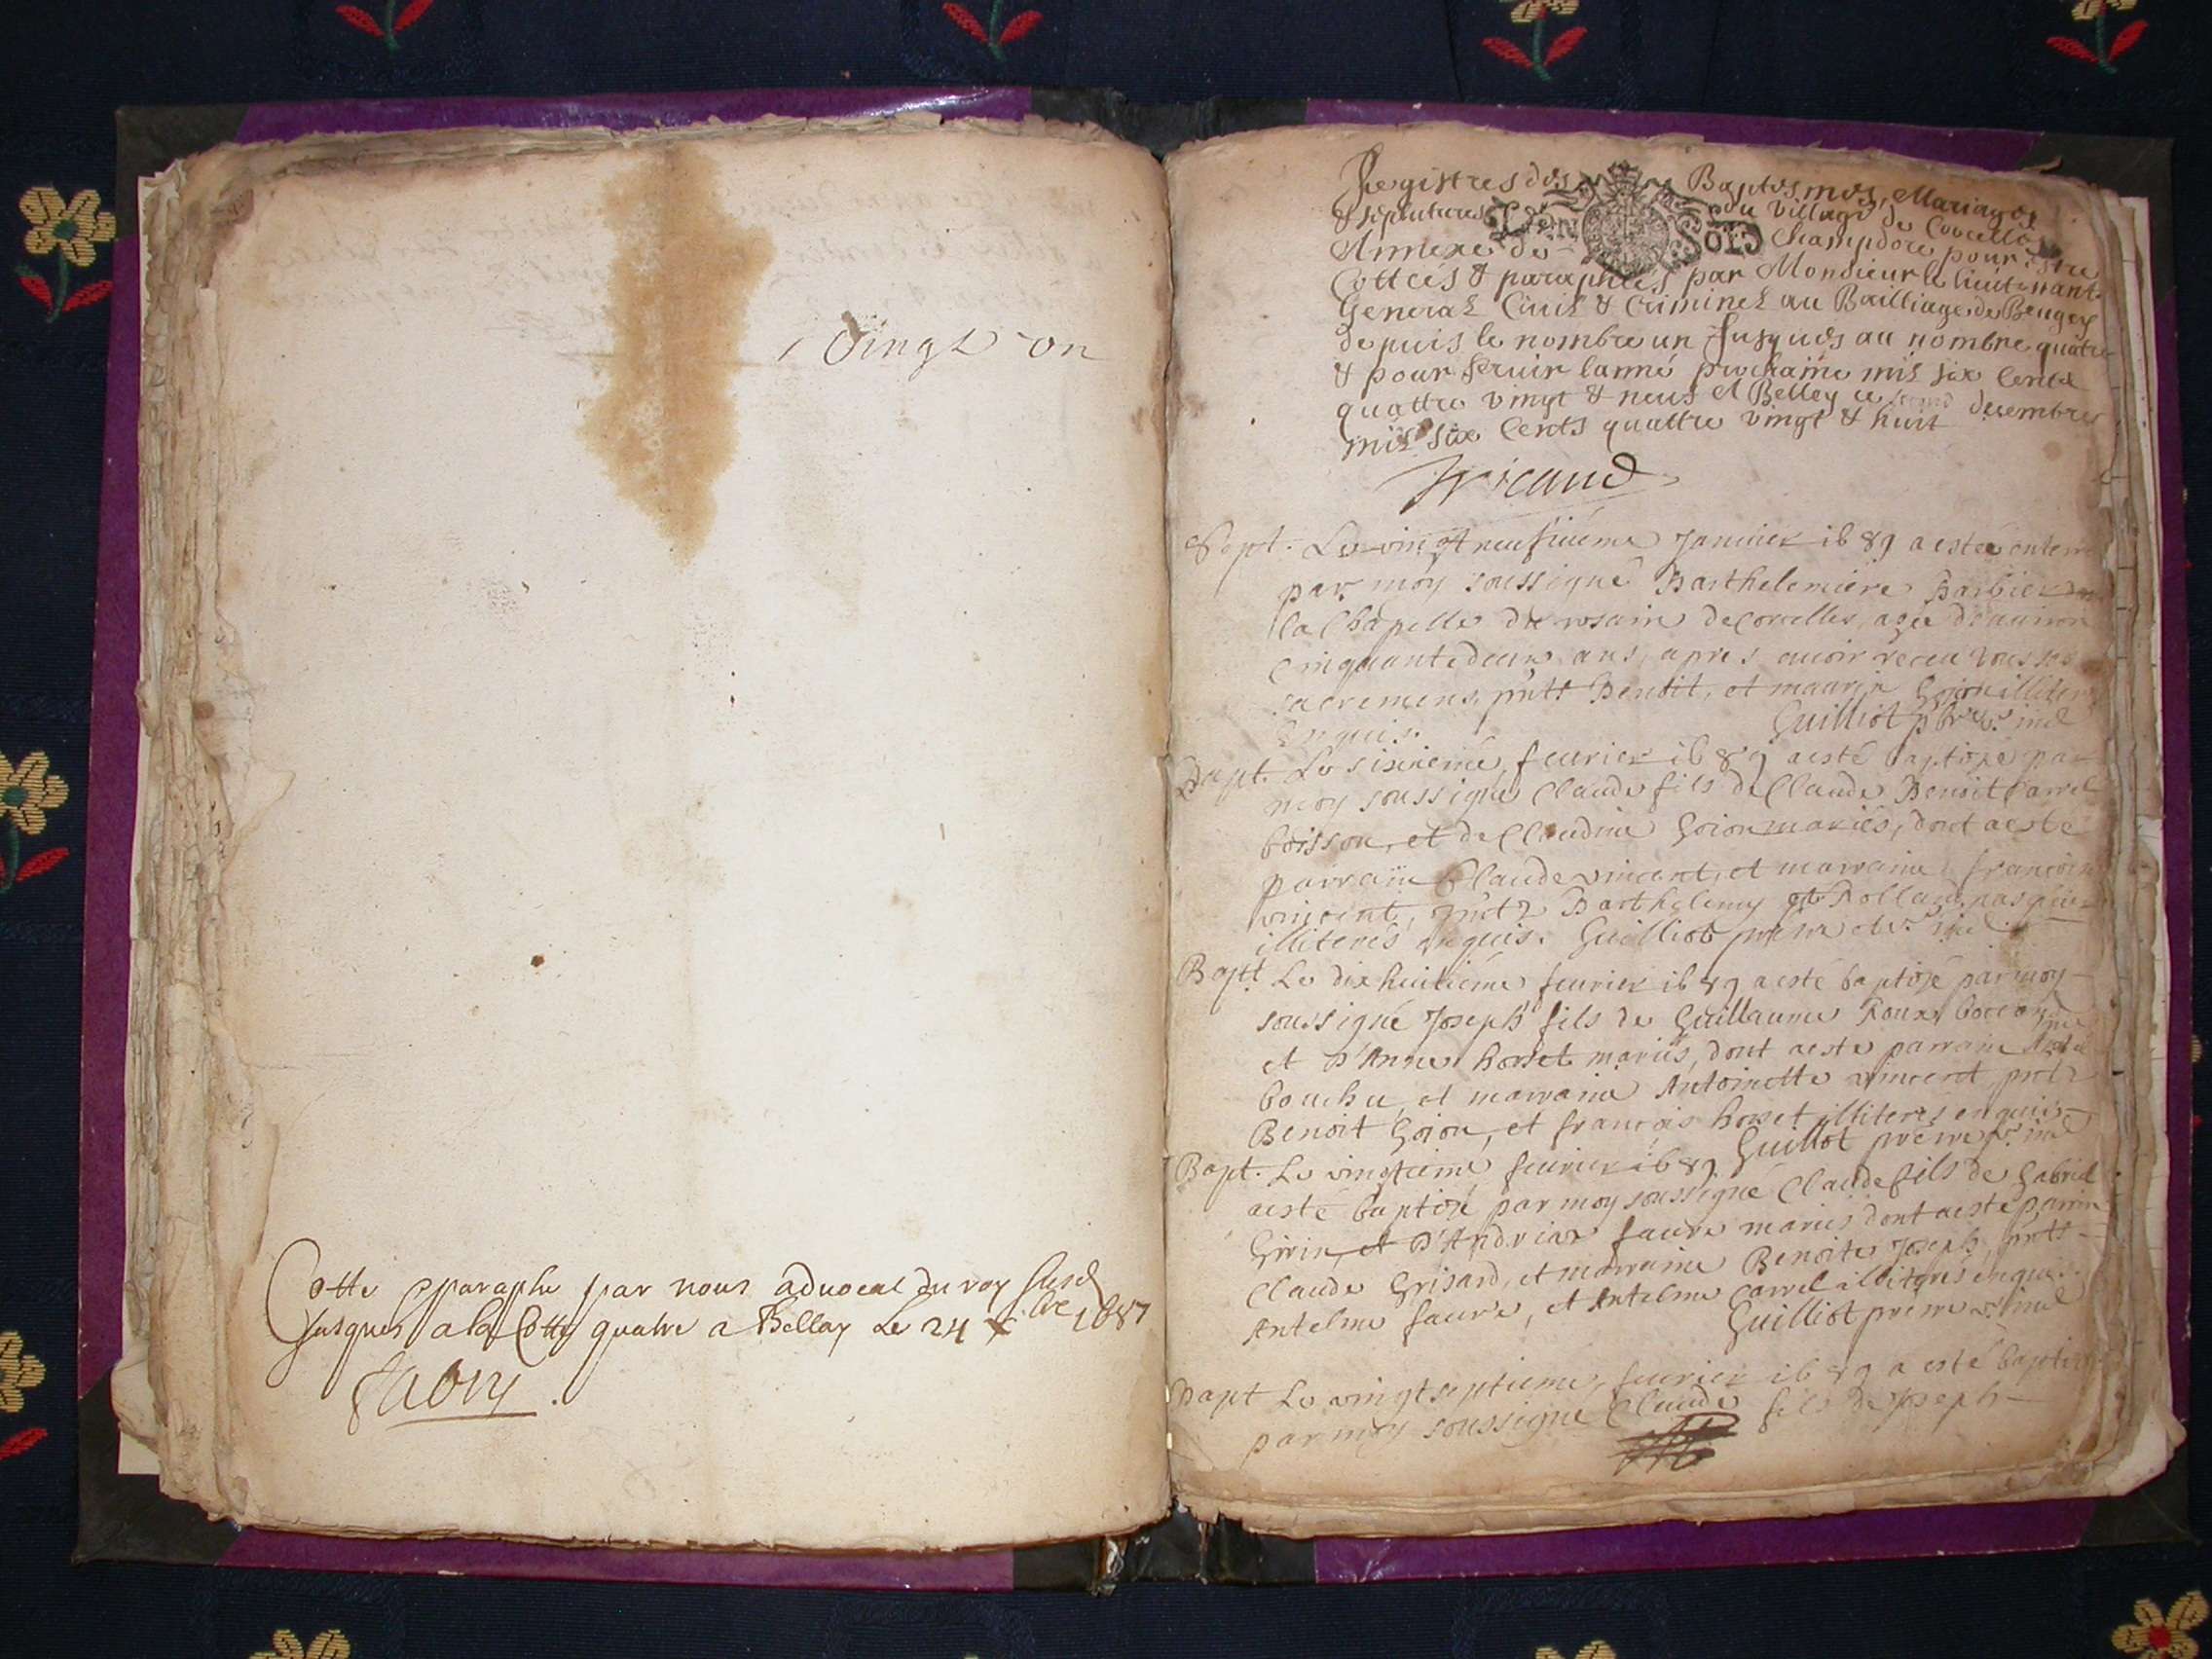 vingt un
Cotte paraphe par nous advocat du roy
Jusques a la Cotte quatre a Bellay Le 24 xbre 1687
Registres des Baptesmes, Mariages
& sepultures du village de Corcelle
Annexe de Champdore pour estre
SOLS
Cottees & paraphées par Monsieur le lieutenant
General Civil & Criminel au Bailliage de Beugey
depuis le nombre un Jusques au nombre quatre
& pour servir lanné prochaine mil six Cents
quattre vingt & neuf A Belley ce second decembre
mil six Cents quattre vingt & huit
Sept. Le vingt neufvieme Janvier 1689 a esteé enterre
par moy soussigné Barthelemiere Barbier
la Chapelle du rosaire de Corcelles, agée d'environ
Cinquante deux ans, apres avoir receu tous ses
sacremens, pntt Benoit, et maurix Goion illiter
enquis. Guilliot pbre vic. ind
Bapt. Le sixieme fevrier 1689 a esté baptizé par
moy soussigné Claude fils de Claude Benoit Carrel
boisson, et de Claudine Goion mariés, dont a esté
parrain Claude vincent, et marraine francoise
vincent, pntz Barthelemy et Rolland pasquier
illiterés enquis. Guilliot prêtre et v. ind
Baptt Le dix huitiéme fevrier 1689 a esté baptizé par moy
soussigné Joseph fils de Guillaume Roux boccond
et d'Anne borset mariés, dont a esté parrain
bouchu, et marraine Antoinette vincent pntz
Benoit Goion, et francois borset illiterés enquis
Guilliot prêtre v. ind
Bapt. Le vingtiemé fevrier 1689
a esté baptizé par moy soussigné Claude fils de Gabriel
Girin et d'Andriaz faure mariés dont a esté parrin
Claude Grisard, et marraine Benoite Joseph, pntt
Antelme faure, et Antelme Carrel illiterés enquis
Guilliot prêtre v. ind
Bapt Le vingt septieme fevrier 1689 a esté baptizé
par moy soussigné Claude fils de Joseph